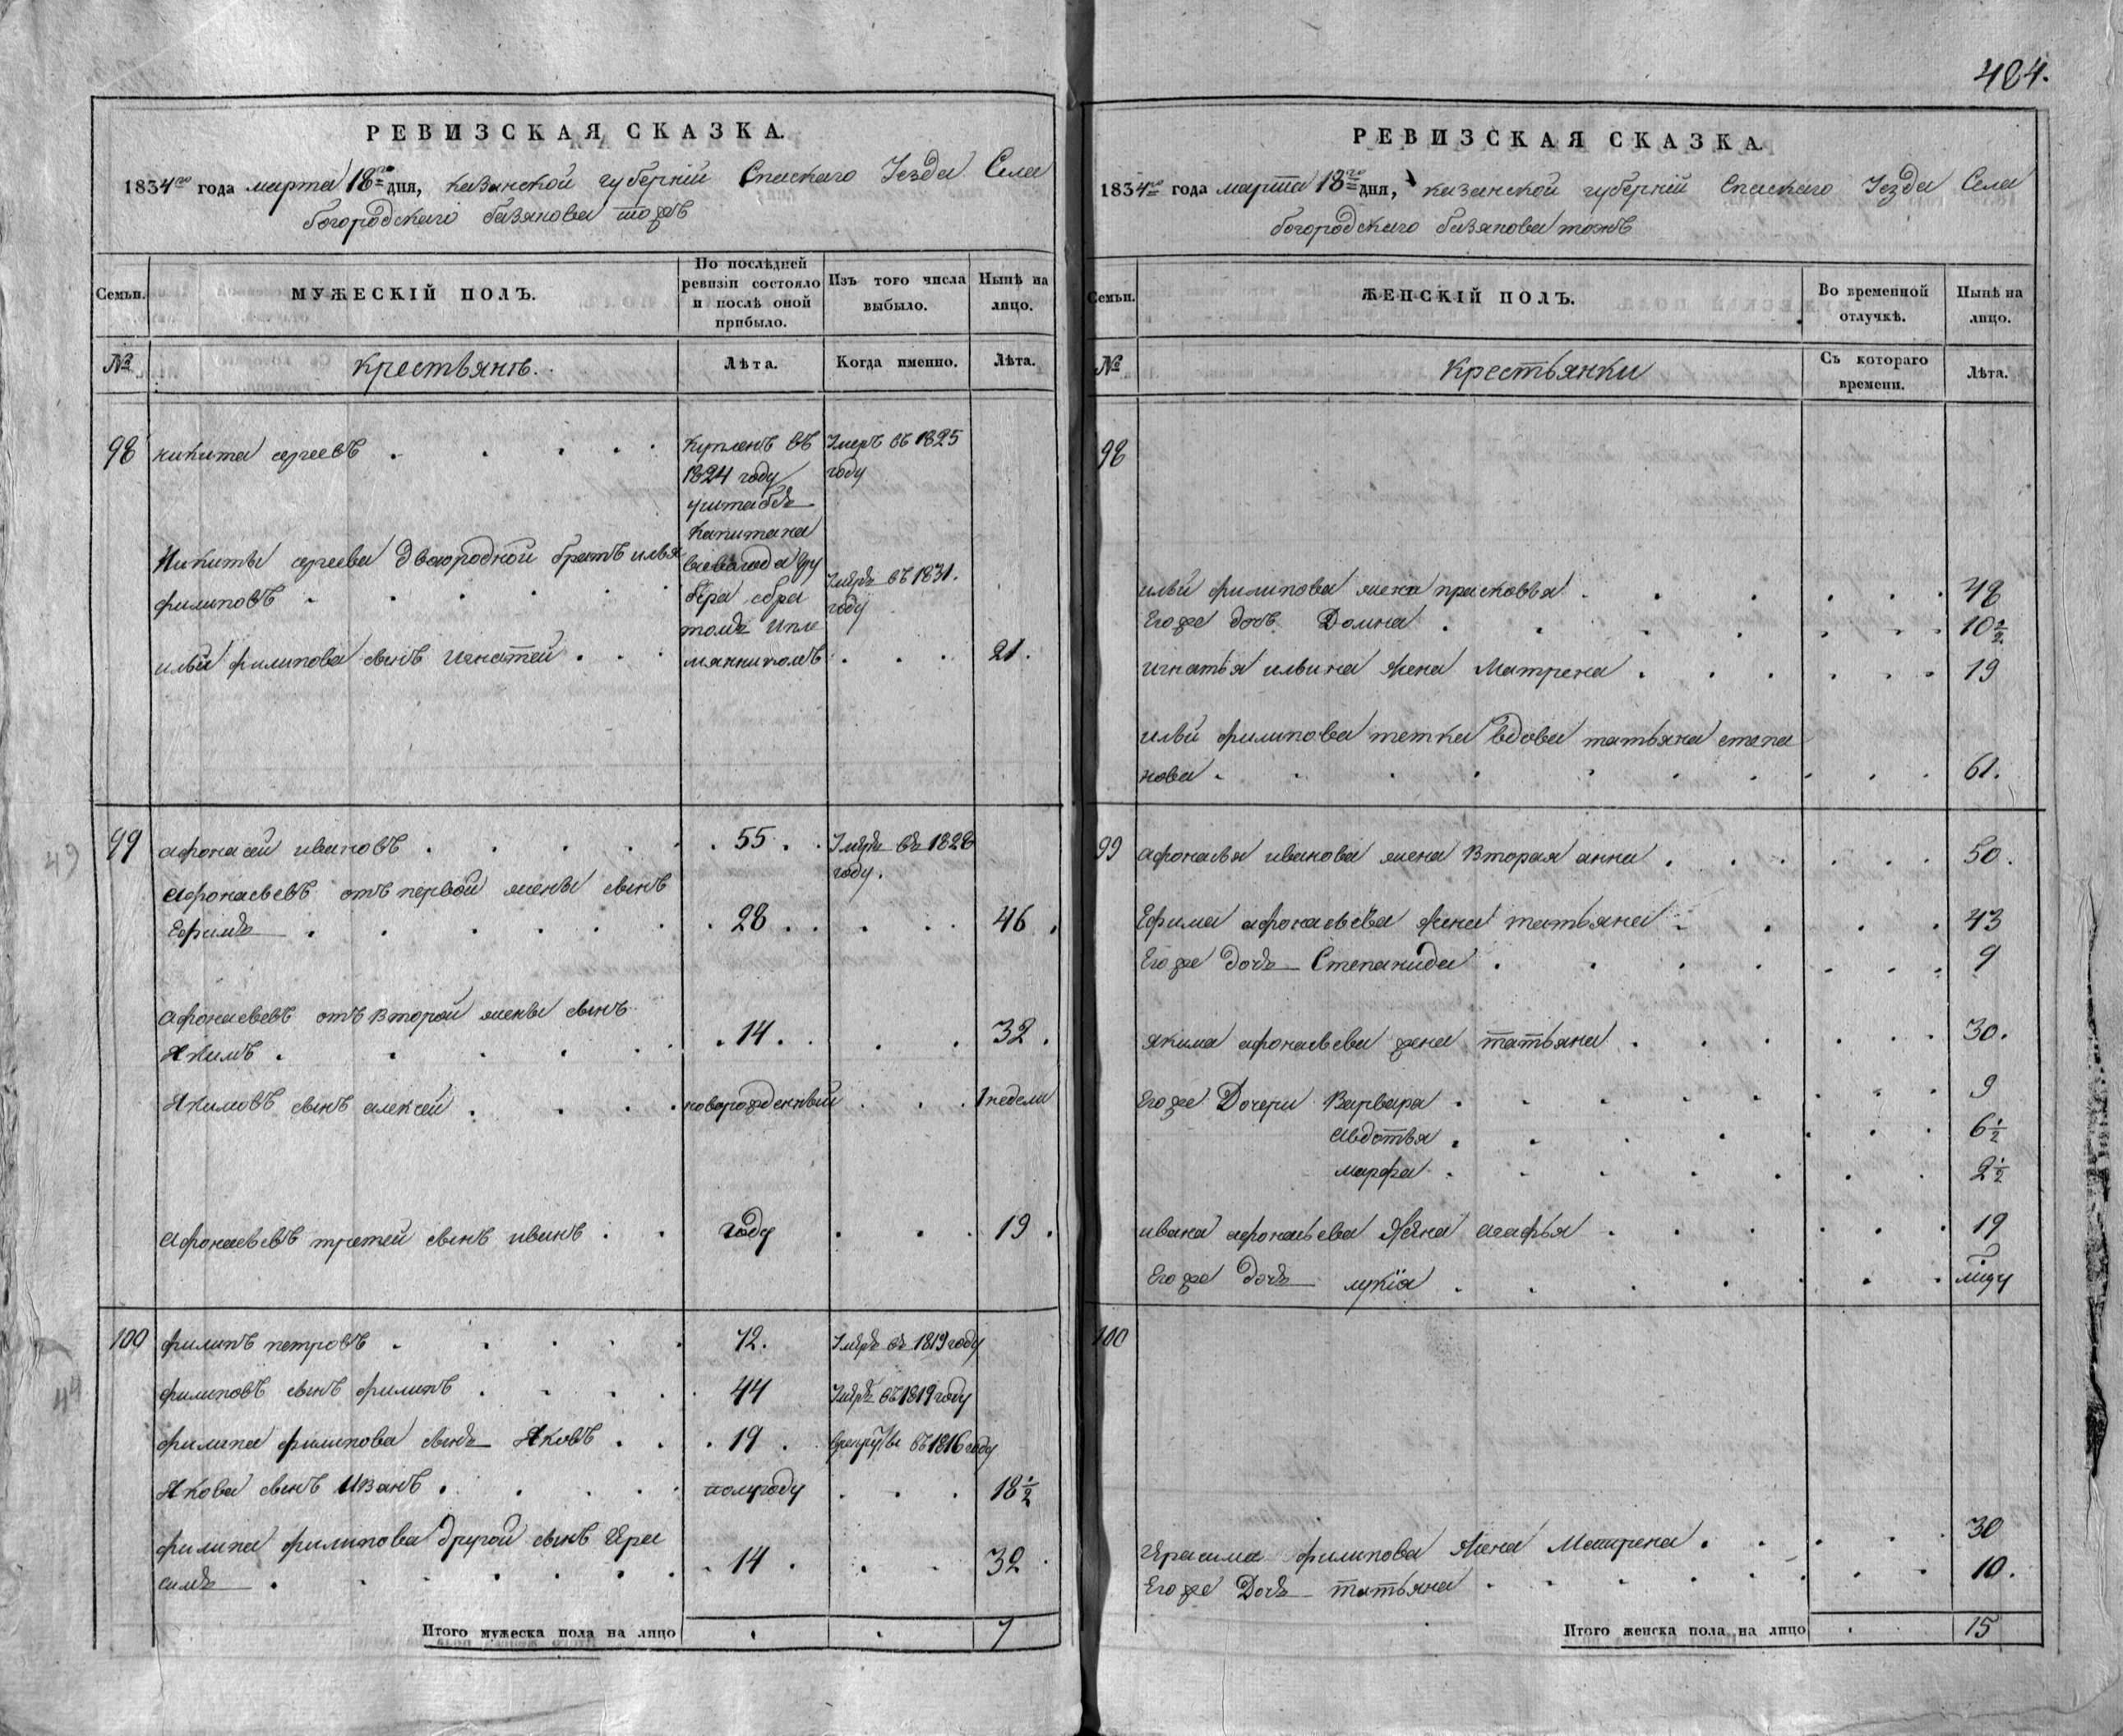 484.
РЕВИЗСКАЯ СКАЗКА.
1834го года марта 18го дня, казанской губерніи Спаскаго Уезда Села
богородскаго базякова тожъ
Семьи. МУЖЕСКІЙ ПОЛЪ. По послѣдней ревизіи состояло и послѣ оной прибыло. Изъ того числа выбыло. Нынѣ на лицо.
№ крестьянъ. Лѣта. Когда именно. Лѣта.
98 никита сергеевъ Купленъ въ Умеръ въ 1825
1824 году году
у штабсъ
Капитана
Никиты сергеева двоюродной братъ илья
филиповъ Умеръ въ 1831.
году
збра
томъ ипле
ильи филипова сынъ игнатей мянникомъ 21.
99 афонасей ивановъ 55 Умеръ въ 1828
году.
афонасьевъ отъ первой жены сынъ
Ефимъ 28 46
афонасьевъ отъ второй жены сынъ
Якимъ 14 32
Якимовъ сынъ алексей новорожденный 1 недели
афонасьевъ третей сынъ иванъ году 19
100 филипъ петровъ 72. Умеръ въ 1819 году
филиповъ сынъ филипъ 44 Умеръ въ 1819 году
филипа филипова сынъ Яковъ 19 въ 1816 году
Якова сынъ Иванъ полугоду 18½
филипа филипова другой сынъ Гера
симъ 14 32
Итого мужеска пола на лицо 7
РЕВИЗСКАЯ СКАЗКА
1834го года марта 18го дня, казанской губерніи Спаскаго Уезда Села
богородскаго базякова тожъ
Семьи. ЖЕНСКІЙ ПОЛЪ. Во временной отлучкѣ. Нынѣ на лицо.
№ Крестьянки Съ котораго времени. Лѣта.
98
ильи филипова жена прасковья 48
Егоже дочь Домна 10½
игнатья ильина жена Матрена 19
ильи филипова тетка вдова татьяна степа
нова 61.
99 афонасья иванова жена вторая анна 50.
Ефима афонасьева жена татьяна 43
Егоже дочь Степанида 9
якима афонасьева жена татьяна 30.
Егоже Дочери Варвара 9
авдотья 6½
марфа 2½
ивана афонасьева жена агафья 19
Егоже дочь
100
Герасима филипова жена Матрена 30
Егоже Дочь татьяна 10.
Итого женска пола на лицо 15